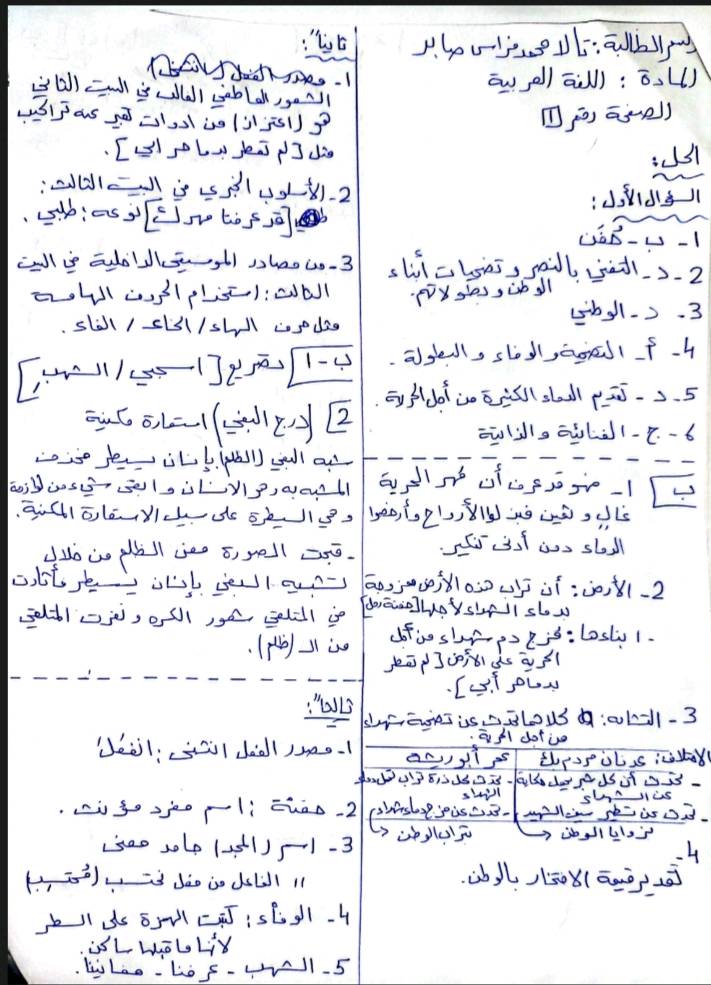 اسم الطالبة: تالا محمد فراس صابر
المادة: اللغة العربية
الصفحة رقم 1
الحل:
السؤال الأول:
1- ب- كَفَن
2- د- التغني بالنصر وتضحيات أبناء
الوطن وبطولاتهم.
3- د- الوطني
4- أ- التضحية والوفاء والبطولة.
5- د- تقديم الدماء الكثيرة من أجل الحرية.
6- ج- الغنائية والذاتية
ب 1- نحن قد عرفنا أن مهر الحرية
غال وثمين فبذلنا الأرواح وأرخصنا
الدماء دون أدنى تفكير.
2- الأرض: أن تراب هذه الأرض ممزوجة
بدماء الشهداء لأجلها
1. بناءها: خروج دم شهداء من أجل
الحرية على الأرض [لم تعطر
بدما حر أبي].
3- التشابه: كلاهما تحدثا عن تضحية شهداء
من أجل الحرية.
الاختلاف: عدنان مردم بك
عمر أبو ريشة
- تحدث أن كل شبر يحمل حكاية
عن الشهداء
- تحدث عن تعطر سيف الشهيد
زوايا الوطن
- تحدث كل ذرة تراب تحمل دماء
الشهداء
- تحدث عن مزج دماء شهدائهم
بتراب الوطن
4-
تقدير قيمة الافتخار بالوطن.
ثانياً:
1- الشعور العاطفي الغالب في البيت الثاني
هو (اعتزاز) من أدوات تعبيره تراكيب
مثل [لم تعطر بدما حر أبي].
2- الأسلوب الخبري في البيت الثالث:
[قد عرفنا مهرك] نوعه: طلبي.
3- من مصادر الموسيقى الداخلية في البيت
الثالث: استخدام الحروف الهامسة
مثل حرف الهاء / الخاء / الفاء.
ب- 1 تصريع [سحبي / الشهب]
2 (درج البغي) استعارة مكنية
شبه البغي (الظلم) بإنسان يسير فحذف
المشبه به وهو الإنسان وأبقى شيء من لوازمه
وهي على سبيل الاستعارة المكنية.
- قبحت الصورة معنى الظلم من خلال
تشبيه البغي بإنسان يسير فأثارت
في المتلقي شعور الكره ونفرت المتلقي
من الـ (ظلم).
ثالثاً:
1- مصدر الفعل انتشى: انفعال
2- صفة: اسم مفرد مؤنث.
3- اسم (المجد) جامد معنى
" الفاعل من فعل تحتسب (مُحتسِب)
4- الوفاء: كتبت الهمزة على السطر
لأنها ما قبلها ساكن.
5- الشهب - عرفنا - مغانينا.